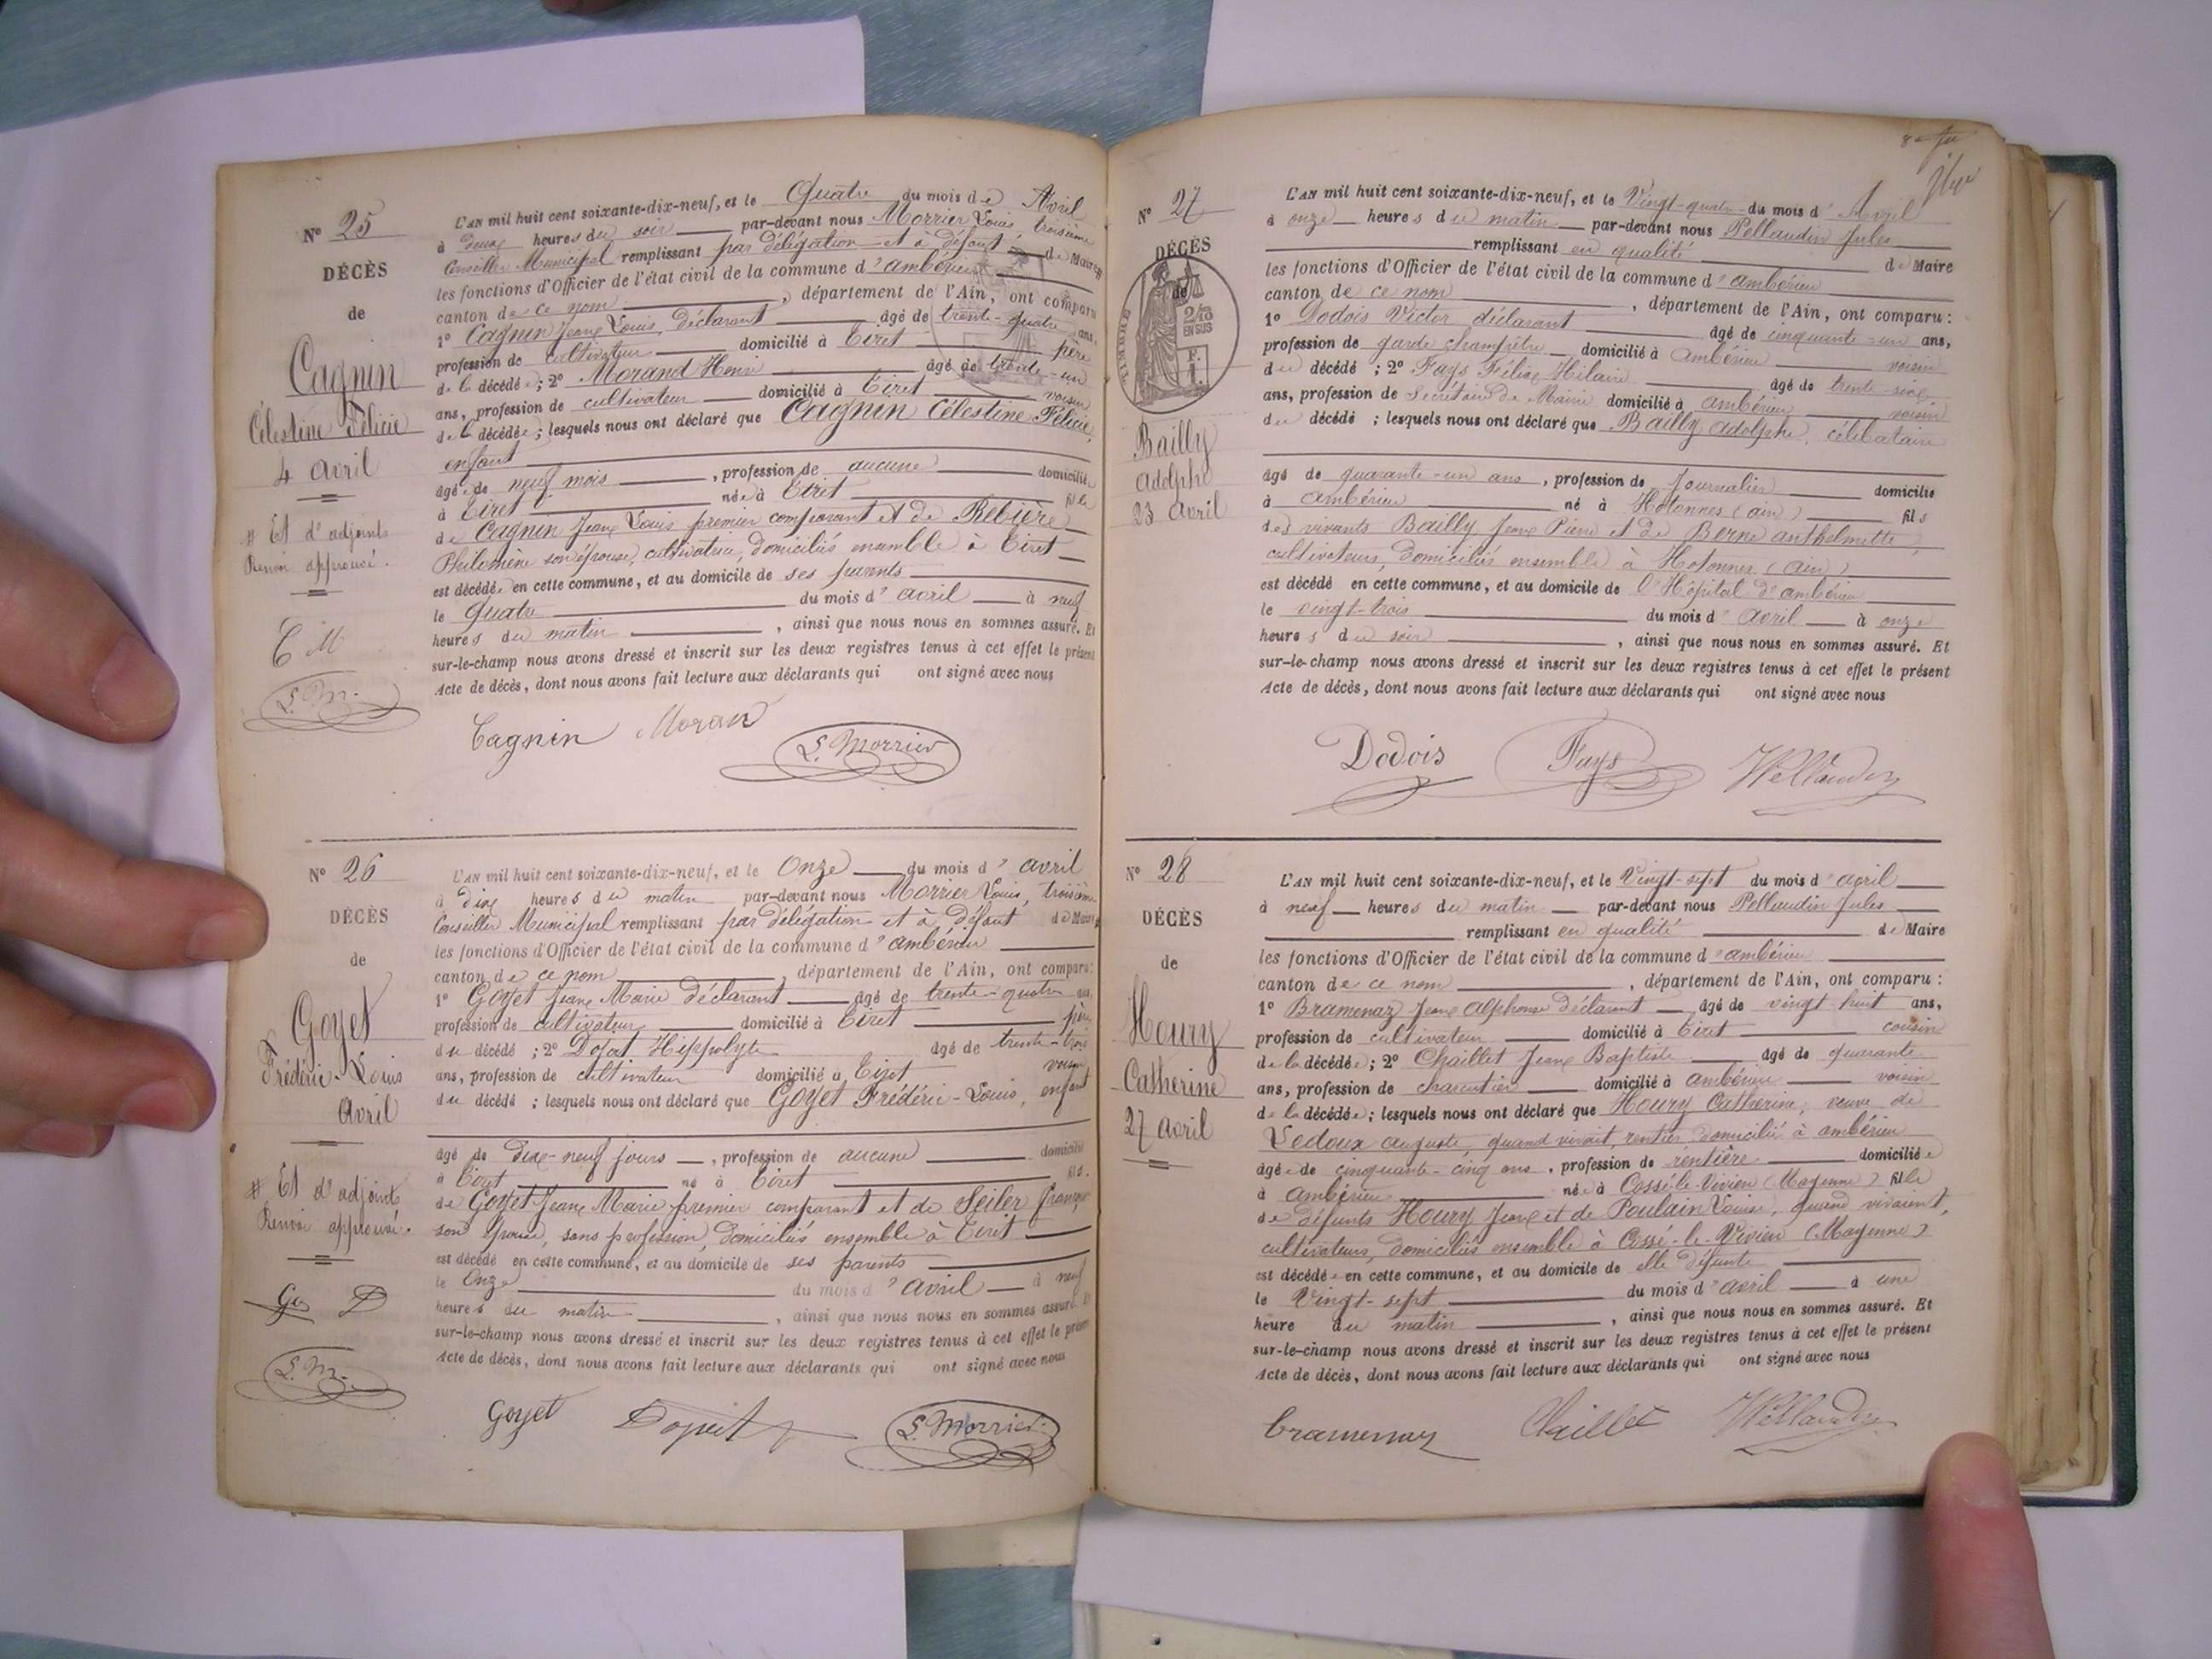 N° 25
DÉCÈS
de
Cagnin
Célestine Félicie
4 avril
# Et d'adjoints
Renvoi approuvé.
C M
L. M.
L'AN mil huit cent soixante-dix-neuf, et le Quatre du mois de Avril
à douze heures du soir par-devant nous Morrier Louis, troisième
Conseiller Municipal remplissant par délégation et à défaut de Maire #
les fonctions d'Officier de l'état civil de la commune d'ambérieu
canton de ce nom, département de l'Ain, ont comparu
1° Cagnin Jean Louis, déclarant âgé de trente-quatre ans,
profession de cultivateur domicilié à Tiret père
de la décédée; 2° Morand Henri âgé de trente-un
ans, profession de cultivateur domicilié à Tiret voisin
de la décédée; lesquels nous ont déclaré que Cagnin Célestine Félicie,
enfant
âgée de neuf mois, profession de aucune domiciliée
à Tiret née à Tiret fille
de Cagnin Jean Louis premier comparant et de Rebière
Philomène son épouse, cultivatrice, domiciliés ensemble à Tiret
est décédée en cette commune, et au domicile de ses parents
le quatre du mois d'avril à neuf
heures du matin, ainsi que nous nous en sommes assuré. Et
sur-le-champ nous avons dressé et inscrit sur les deux registres tenus à cet effet le présent
Acte de décès, dont nous avons fait lecture aux déclarants qui ont signé avec nous
Cagnin Moran L. Morrier
N° 26
DÉCÈS
de
Goyet
Frédéric-Louis
Avril
# Et d'adjoints
Renvoi approuvé.
Go D
L. M.
L'AN mil huit cent soixante-dix-neuf, et le Onze du mois d'avril
à dix heures du matin par-devant nous Morrier Louis, troisième
Conseiller Municipal remplissant par délégation et à défaut de Maire #
les fonctions d'Officier de l'état civil de la commune d'ambérieu
canton de ce nom, département de l'Ain, ont comparu:
1° Goyet Jean Marie déclarant âgé de trente-quatre ans,
profession de cultivateur domicilié à Tiret père
du décédé; 2° Dojat Hippolyte âgé de trente-trois
ans, profession de cultivateur domicilié à Tiret voisin
du décédé; lesquels nous ont déclaré que Goyet Frédéric-Louis, enfant
âgé de dix-neuf jours, profession de aucune domicilié
à Tiret né à Tiret fils
de Goyet Jean Marie premier comparant et de Seiler
son épouse, sans profession, domiciliés ensemble à Tiret
est décédé en cette commune, et au domicile de ses parents
le Onze du mois d'avril à neuf
heures du matin, ainsi que nous nous en sommes assuré. Et
sur-le-champ nous avons dressé et inscrit sur les deux registres tenus à cet effet le présent
Acte de décès, dont nous avons fait lecture aux déclarants qui ont signé avec nous
Goyet L. Morrier
N° 27
DÉCÈS
de
TIMBRE
2/10
EN SUS
F.
Bailly
Adolphe
23 Avril
L'AN mil huit cent soixante-dix-neuf, et le Vingt-quatre du mois d'Avril
à onze heures du matin par-devant nous Pellaudin Jules
remplissant en qualité de Maire
les fonctions d'Officier de l'état civil de la commune d'ambérieu
canton de ce nom, département de l'Ain, ont comparu:
1° Dodois Victor déclarant âgé de cinquante-un ans,
profession de garde champêtre domicilié à Ambérieu voisin
du décédé; 2° Fays Félix Hilaire âgé de trente-six
ans, profession de Secrétaire de Mairie domicilié à ambérieu voisin
du décédé; lesquels nous ont déclaré que Bailly Adolphe, célibataire
âgé de quarante-un ans, profession de Journalier domicilié
à ambérieu né à Hotonnes (ain) fils
des vivants Bailly Jean Pierre et de Berne anthelmette,
cultivateurs, domiciliés ensemble à Hotonnes (ain)
est décédé en cette commune, et au domicile de l'Hôpital d'ambérieu
le vingt-trois du mois d'avril à onze
heures du soir, ainsi que nous nous en sommes assuré. Et
sur-le-champ nous avons dressé et inscrit sur les deux registres tenus à cet effet le présent
Acte de décès, dont nous avons fait lecture aux déclarants qui ont signé avec nous
Dodois Fays Pellaudin
N° 28
DÉCÈS
de
Houry
Catherine
27 avril
L'AN mil huit cent soixante-dix-neuf, et le Vingt-sept du mois d'avril
à neuf heures du matin par-devant nous Pellaudin Jules
remplissant en qualité de Maire
les fonctions d'Officier de l'état civil de la commune d'ambérieu
canton de ce nom, département de l'Ain, ont comparu:
1° Bramenaz Jean Alphonse déclarant âgé de vingt-huit ans,
profession de cultivateur domicilié à Tiret cousin
de la décédée; 2° Chaillet Jean Baptiste âgé de quarante
ans, profession de charcutier domicilié à ambérieu voisin
de la décédée; lesquels nous ont déclaré que Houry Catherine, veuve de
Ledoux auguste, quand vivait, rentier domicilié à ambérieu
âgée de cinquante-cinq ans, profession de rentière domiciliée
à ambérieu née à Cossé-le-Vivien (Mayenne) fille
de défunts Houry Jean et de Poulain Louise, quand vivaient,
cultivateurs, domiciliés ensemble à Cossé-le-Vivien (Mayenne)
est décédée en cette commune, et au domicile de elle défunte
le Vingt-sept du mois d'avril à une
heure du matin, ainsi que nous nous en sommes assuré. Et
sur-le-champ nous avons dressé et inscrit sur les deux registres tenus à cet effet le présent
Acte de décès, dont nous avons fait lecture aux déclarants qui ont signé avec nous
bramenaz Chaillet Pellaudin